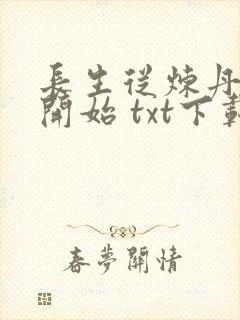 長生從煉丹
開始 txt下載
春夢關情